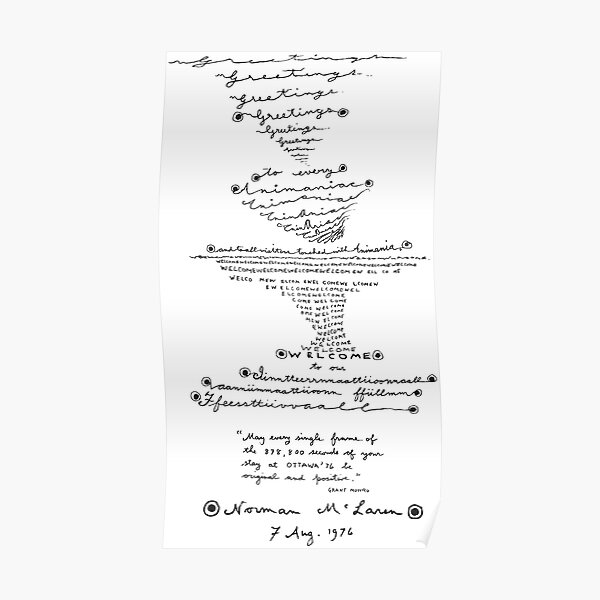 Greetings
Greetings
Greetings
Greetings
Greetings
Greetings
to every
Animaniac
Animaniac
Animaniac
and to all visitors touched with Animania,
WELCOMEWELCOMEWELCOMEWELCOM EW ELL CO ME
WELCO MEW ELCOM EWEL COMEWE LCOMEW
EWELCOMEWELCOMEWEL
ELCOMEWELCOME
COME WELCOME
COME WELCOME
OME WELCOME
MEW ELCOME
EWELCOME
WELCOME
WELCOME
WELCOME
WELCOME
WELCOME
to our
iinntteerrnnaattiioonnaall
aanniimmaattiioonn ffiillmm
Ffeessttiivvaall
"May every single frame of
the 878,800 seconds of your
stay at OTTAWA '76 be
original and positive."
GRANT MUNRO
Norman McLaren
7 Aug. 1976